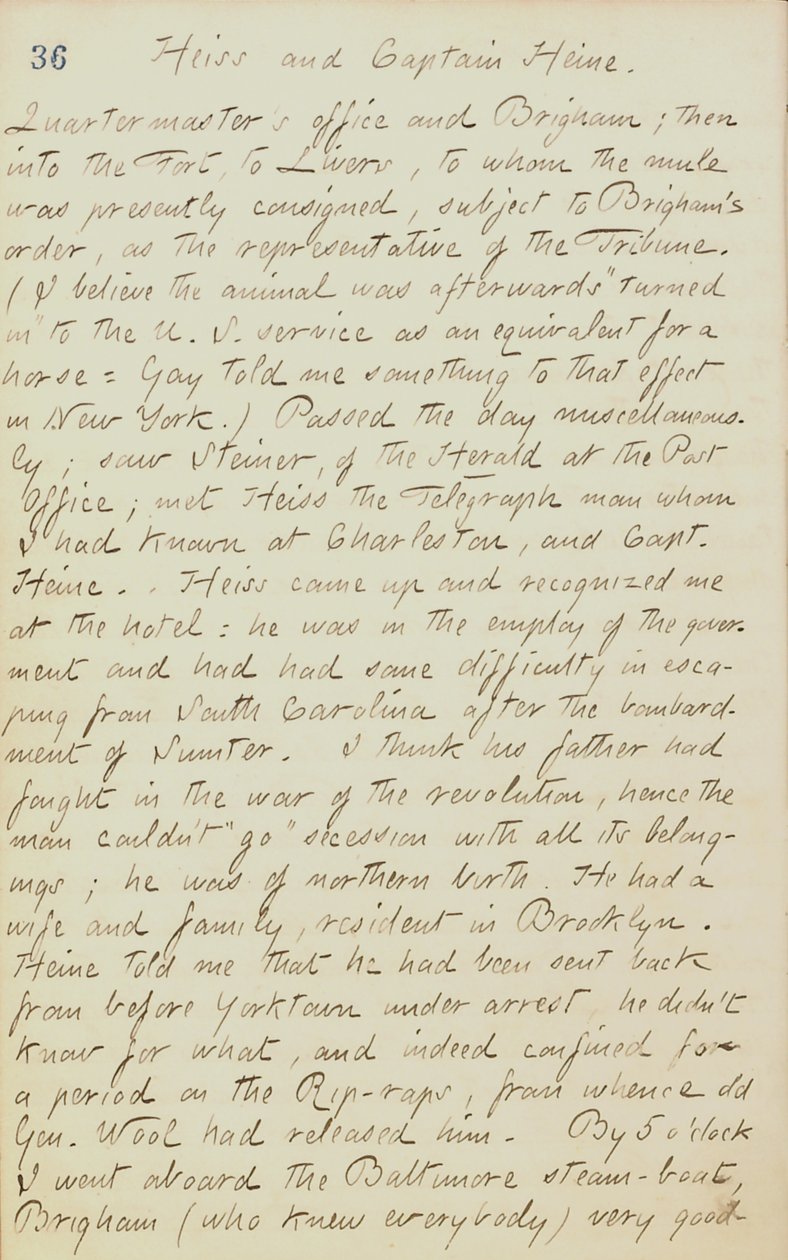 36 Heiss and Captain Heine.
Quartermaster's office and Brigham; then
into the Fort, to Livers, to whom the mule
was presently consigned, subject to Brigham's
order, as the representative of the Tribune.
(I believe the animal was afterwards "turned
in" to the U. S. service as an equivalent for a
horse = Gay told me something to that effect
in New York.) Passed the day miscellaneous-
ly; saw Steiner, of the Herald at the Post
Office; met Heiss the Telegraph man whom
I had known at Charleston, and Capt.
Heine. . Heiss came up and recognized me
at the hotel: he was in the employ of the gover-
ment and had had some difficulty in esca-
ping from South Carolina after the bombard-
ment of Sumter. I think his father had
fought in the war of the revolution, hence the
man couldn't "go" secession with all its belong-
ings; he was of northern birth. He had a
wife and family, resident in Brooklyn.
Heine told me that he had been sent back
from before Yorktown under arrest, he didn't
know for what, and indeed confined for
a period on the Rip-raps, from whence old
Gen. Wool had released him. By 5 o'clock
I went aboard the Baltimore steam-boat,
Brigham (who knew everybody) very good-